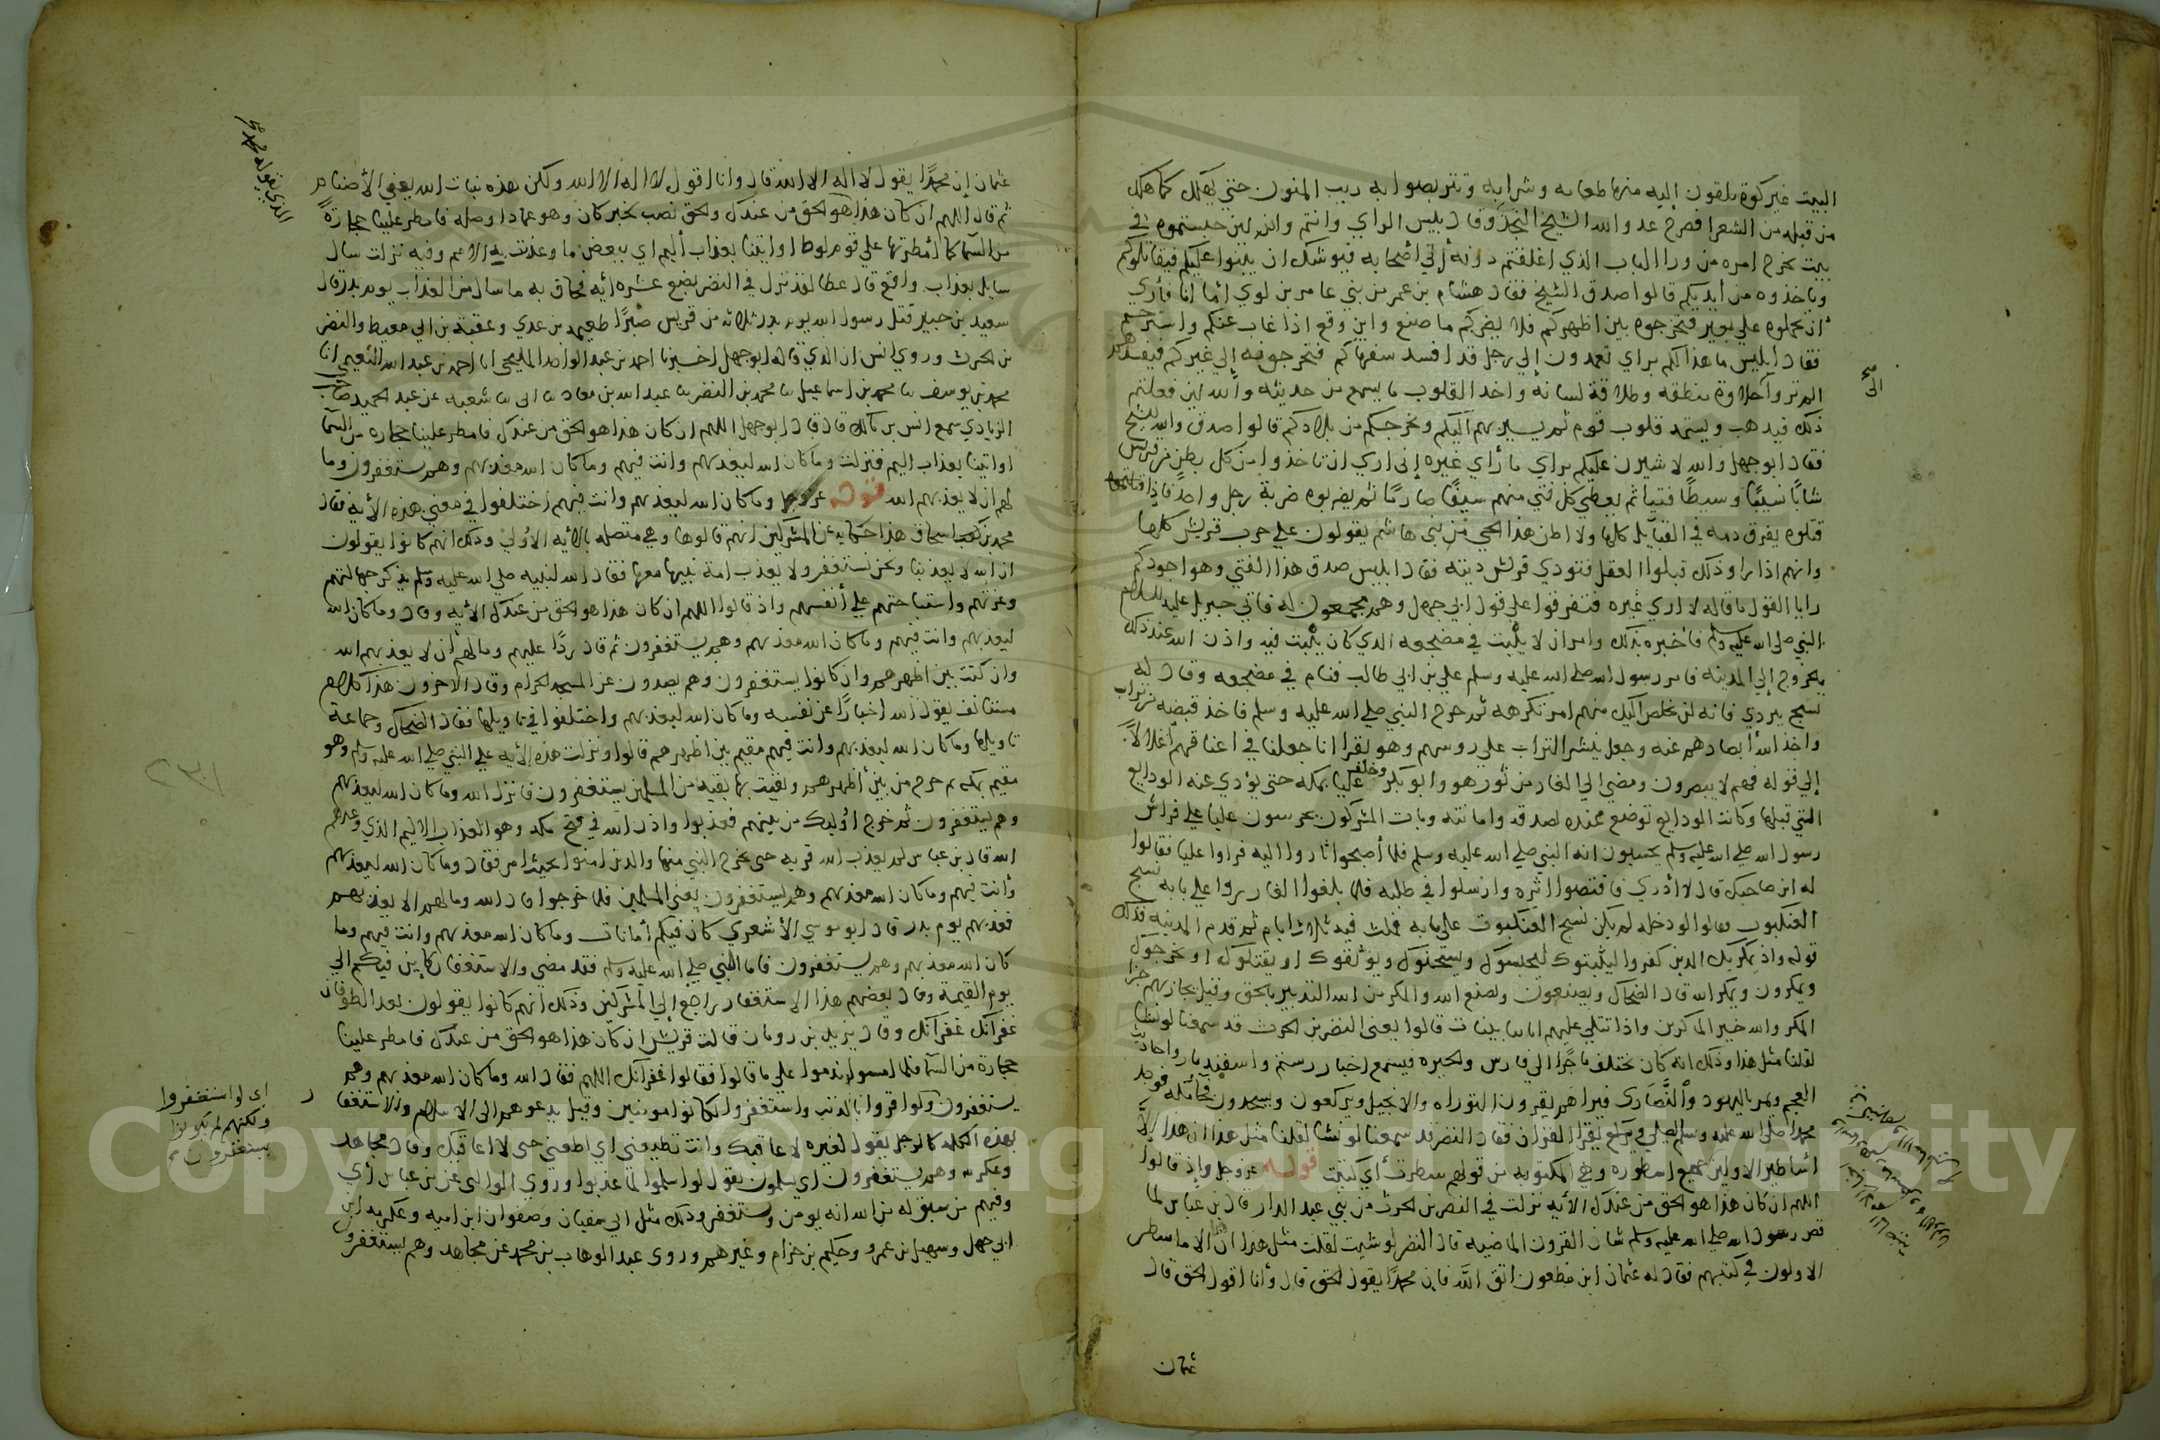 البيت غير كوة تلقون إليه منها طعامه وشرابه وتتربصوا به ريب المنون حتي يهلك كما هلك
من قبله من الشعرا فصرخ عدو الله الشيخ النجدي وقال بئس الراي رايتم والله لئن حبستموه في
بيت يخرج امره من ورا الباب الذي اغلقتم دونه إلي أصحابه فيوشك ان يثبوا عليكم فيقاتلوكم
وياخذوه من أيديكم قالوا صدق الشيخ فقال هشام بن عمرو من بني عامر بن لوي أما أنا فأري
ان تحملوه علي بعير فتخرجوه بين اظهركم فلا يضركم ما صنع واين وقع اذا غاب عنكم واسترحتم
فقال ابليس ما هذا لكم براي تعمدون إلي رجل قد افسد سفهاكم فتخرجونه إلي غيركم فيفسدهم
الم تروا حلاوة منطقه وطلاقة لسانه واخذ القلوب ما يسمع من حديثه والله لئن فعلتم
ذلك فيذهب ويستميل قلوب قوم ثم يسير بهم اليكم ويخرجكم من بلادكم قالوا صدق والله الشيخ
فقال ابو جهل والله لاشيرن عليكم براي ما أري غيره إني اري ان تاخذوا من كل بطن من قريش
شابا نسيبا وسيطا فتيا ثم يعطي كل فتي منهم سيفا صارما ثم يضربوه ضربة رجل واحد فإذا
قتلوه يفرق دمه في القبايل كلها ولا اظن هذا الحي من بني هاشم يقولون علي حرب قريش كلها
وانهم اذا راوا ذلك قبلوا العقل فتودي قريش ديته فقال ابليس صدق هذا الفتي وهو اجودكم
رايا القول ما قاله لا اري غيره فتفرقوا علي قول ابي جهل وهم مجمعون له فاتي جبريل عليه السلام
النبي صلى الله عليه وسلم فأخبره بذلك وامره ان لا يبيت في مضجعه الذي كان يبيت فيه واذن الله عند ذلك
بالخروج إلي المدينة فامر رسول الله صلى الله عليه وسلم علي بن ابي طالب فنام في مضجعه وقال له
تسج ببردي فانه لن يخلص اليك منهم امر تكرهه ثم خرج النبي صلى الله عليه وسلم فاخذ قبضة من تراب
واخذ الله أبصارهم عنه وجعل ينثر التراب علي روسهم وهو يقرا انا جعلنا في اعناقهم أغلالا
إلي قوله فهم لا يبصرون ومضي الي الغار من ثور هو وابو بكر وخلف عليا بمكه حتي يؤدي عنه الودايع
التي قبلها وكانت الودايع توضع عنده لصدقه وامانته وبات المشركون يحرسون عليا علي فراش
رسول الله صلى الله عليه وسلم يحسبون انه النبي صلى الله عليه وسلم فلما أصبحوا ثاروا اليه فراوا عليا فقالوا
له اين صاحبك قال لا أدري فاقتصوا اثره وارسلوا في طلبه فلما بلغوا الغار راوا علي بابه نسج
العنكبوت فقالوا لو دخله لم يكن نسج العنكبوت علي بابه فمكث فيه ثلاثة ايام ثم قدم المدينه فذلك
قوله واذ يمكر بك الذين كفروا ليثبتوك ليحبسوك ويسجنوك ويوثقوك او يقتلوك او يخرجوك
ويمكرون ويمكر الله قال الضحاك ويصنعون ويصنع الله والمكر من الله التدبير بالحق وقيل يجازيهم جزا
المكر والله خير الماكرين واذا تتلي عليهم اياتنا بينات قالوا يعني النضر بن الحرث قد سمعنا لو نشا
لقلنا مثل هذا وذلك انه كان يختلف تاجرا الي فارس والحيره فيسمع اخبار رستم واسفنديار واحاديث
العجم ويمر باليهود والنصاري فيراهم يقرون التوراه والانجيل ويركعون ويسجدون فجا مكه فوجد
محمدا صلى الله عليه وسلم يصلي ويركع يقرا القران فقال النضر قد سمعنا لو نشا لقلنا مثل هذا ان هذا إلا
أساطير الاولين جميع اسطوره وهي المكتوبه من قولهم سطرت أي كتبت قوله عز وجل وإذ قالوا
اللهم ان كان هذا هو الحق من عندك الأيه نزلت في النضر بن الحرث من بني عبد الدار قال بن عباس لما
قص رسول الله صلى الله عليه وسلم شان القرون الماضيه قال النضر لو شيت لقلت مثل هذا ان هذا الا ما سطر
الاولون في كتبهم فقال له عثمان ابن مظعون اتق الله فإن محمدا يقول الحق قال وأنا اقول الحق قال
عثمان
عثمان إن محمدا يقول لا اله الا الله قال وانا اقول لا اله الا الله ولكن هذه بنات الله يعني الأصنام
ثم قال اللهم ان كان هذا هو الحق من عندك والحق نصب بخبر كان وهو عماد وصله فامطر علينا حجارة
من السما كما أمطرتها علي قوم لوط او ايتنا بعذاب أليم اي ببعض ما وعدت به الامم وفيه نزلت سال
سايل بعذاب واقع قال عطا لقد نزل في النضر بضع عشره ايه فحاق به ما سال من العذاب يوم بدر قال
سعيد بن جبير قتل رسول الله يوم بدر ثلاثه من قريش صبرا طعيمه بن عدي وعقبة بن ابي معيط والنضر
بن الحرث وروي انس ان الذي قاله ابو جهل اخبرنا احمد بن عبد الواحد المليحي انا احمد بن عبد الله النعيمي انا
محمد بن يوسف نا محمد بن اسماعيل نا محمد بن النضر نا عبد الله بن معاذ نا ابي نا شعبه عن عبد الحميد صاحب
الزيادي سمع انس بن مالك قال قال ابو جهل اللهم ان كان هذا هو الحق من عندك فامطر علينا حجاره من السما
او ايتنا بعذاب اليم فنزلت وما كان الله ليعذبهم وانت فيهم وما كان الله معذبهم وهم يستغفرون وما
لهم ان لا يعذبهم الله قوله عز وجل وما كان الله ليعذبهم وانت فيهم اختلفوا في معني هذه الأيه فقال
محمد بن اسحاق هذا حكاية عن المشركين انهم قالوها وهي متصله بالأيه الأولي وذلك انهم كانوا يقولون
ان الله لا يعذبنا ونحن نستغفره ولا يعذب امة نبيها معها فقال الله لنبيه صلى الله عليه وسلم يذكر جهالتهم
وغرتهم واستفتاحهم علي أنفسهم واذ قالوا اللهم ان كان هذا هو الحق من عندك الأيه وقال وما كان الله
ليعذبهم وانت فيهم وما كان الله معذبهم وهم يستغفرون ثم قال ردا عليهم وما لهم أن لا يعذبهم الله
وان كنت بين اظهرهم وان كانوا يستغفرون وهم يصدون عن المسجد الحرام وقال الاخرون هذا كلام
مستانف يقول الله اخبارا عن نفسه وما كان الله ليعذبهم واختلفوا في تاويلها فقال الضحاك وجماعة
تاويلها وما كان الله ليعذبهم وانت فيهم مقيم بين اظهرهم قالوا ونزلت هذه الأيه علي النبي صلى الله عليه وسلم وهو
مقيم بمكه ثم خرج من بين أظهرهم وبقيت بها بقية من المسلمين يستغفرون فانزل الله وما كان الله ليعذبهم
وهم يستغفرون ثم خرج اوليك من بينهم فعذبوا واذن الله في فتح مكه وهو العذاب الاليم الذي وعدهم
الله قال بن عباس لم يعذب الله قرية حتي يخرج النبي منها والذين امنوا بحيث امر فقال وما كان الله ليعذبهم
وأنت فيهم وما كان الله معذبهم وهم يستغفرون يعني المسلمين فلما خرجوا قال الله وما لهم الا يعذبهم
فعذبهم يوم بدر قال ابو موسي الأشعري كان فيكم أمانان وما كان الله معذبهم وانت فيهم وما
كان الله معذبهم وهم يستغفرون فاما النبي صلى الله عليه وسلم فقد مضي والاستغفار كاين فيكم الي
يوم القيمة وقال بعضهم هذا الاستغفار راجع إلي المشركين وذلك انهم كانوا يقولون بعد الطواف
غفرانك غفرانك وقال يزيد بن رومان قالت قريش ان كان هذا هو الحق من عندك فامطر علينا
حجارة من السما فلما امسوا ندموا علي ما قالوا فقالوا غفرانك اللهم فقال الله وما كان الله معذبهم وهم
يستغفرون ولو اقروا بالذنب واستغفروا لكانوا مومنين وقيل يدعوهم الي الاسلام والاستغفار
بهذه الكلمه كالرجل يقول لغيره لا اعاقبك وانت تطيعني اي اطعني حتي لا اعاقبك وقال مجاهد
وعكرمه وهم يستغفرون اي يسلمون يقول لو اسلموا لما عذبوا وروي الوالبي عن بن عباس أي
وفيهم من سبق له من الله انه يومن ويستغفر وذلك مثل ابي سفيان وصفوان ابن اميه وعكرمه ابن
ابي جهل وسهيل بن عمرو وحكيم بن حزام وغيرهم وروي عبد الوهاب بن محمد عن مجاهد وهم يستغفرون
اي لو استغفروا
ولكنهم لم يكونوا
يستغفرون
Copyright © King Saud University